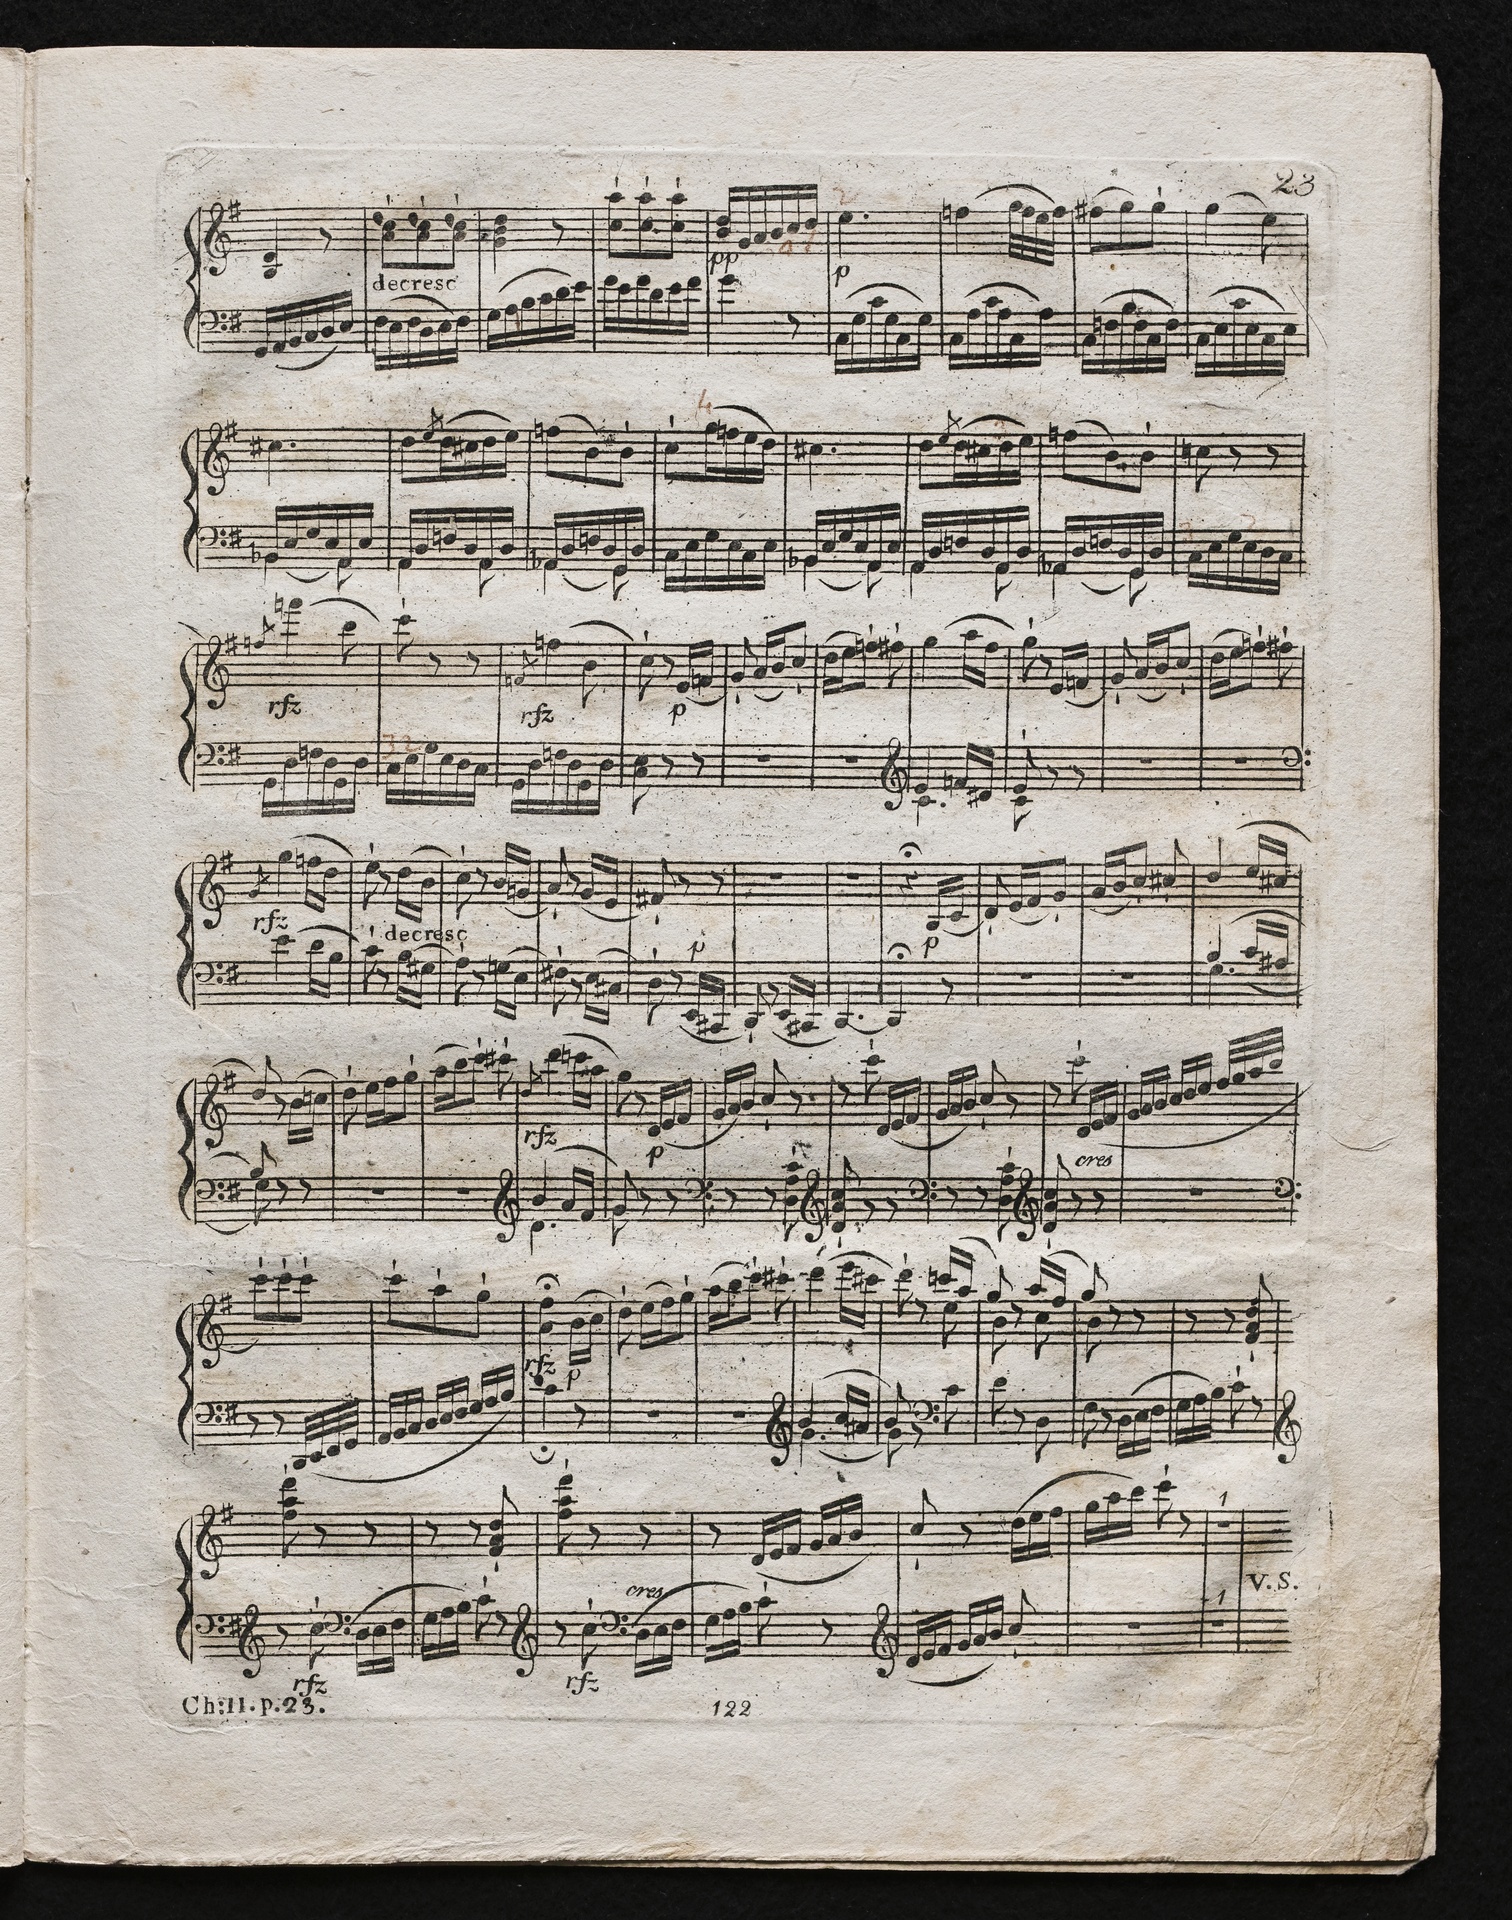 23
decresc
pp
p
4
rfz
rfz
p
32
rfz
decresc
p
p
rfz
p
cres
rfz
p
1
cres
1
V. S.
rfz
rfz
Ch:11.p.23.
122